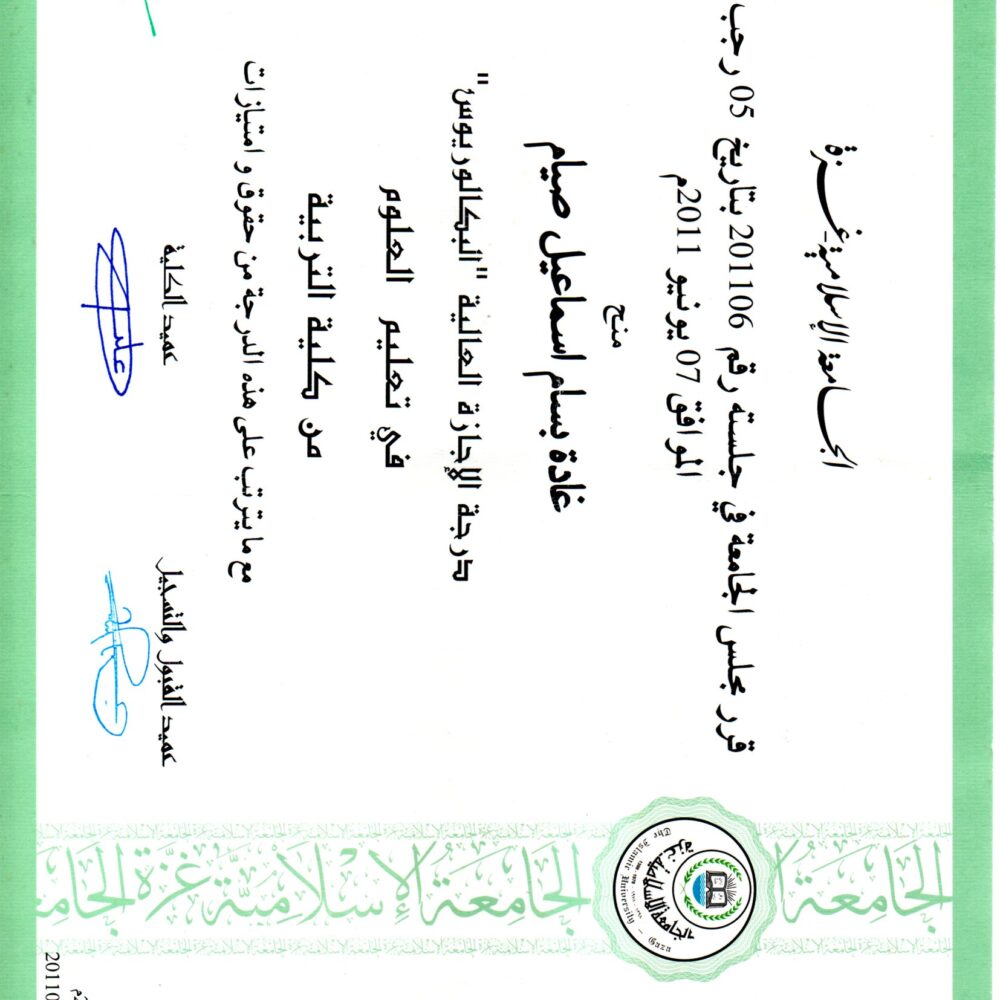 الجامعة الإسلامية غزة
قرر مجلس الجامعة في جلسته رقم 201106 بتاريخ 05 رجب
الموافق 07 يونيو 2011م
منح
غادة بسام اسماعيل صيام
درجة الإجازة العالية "البكالوريوس"
في تعليم العلوم
من كلية التربية
مع ما يترتب على هذه الدرجة من حقوق و امتيازات
عميد القبول والتسجيل
عميد الكلية
الجامعة الإسلامية غزة
The Islamic University - Gaza
الجامعة الإسلامية غزة الجامعة
20110